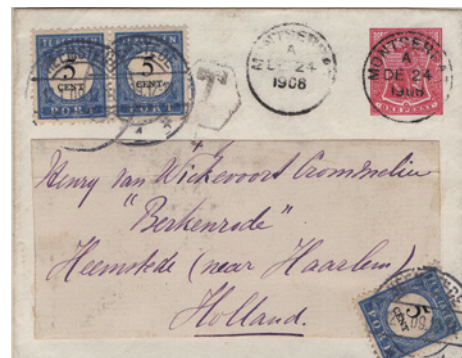 TE BETALEN
5
CENT
PORT
5
CENT
PORT
HEEMSTEDE
T
MONTSERRAT
A
DE 24
1908
MONTSERRAT
A
DE 24
1908
ONE PENNY
Henry van Wickevoort Crommelin
"Berkenrode"
Heemstede (near Haarlem)
Holland.
5
CENT
PORT